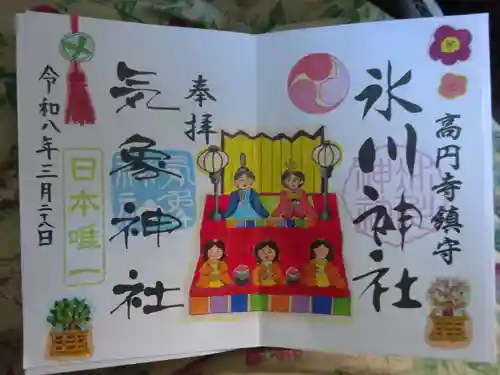 高円寺鎮守
氷川神社
奉拝
気象神社
日本唯一
令和八年三月二十八日